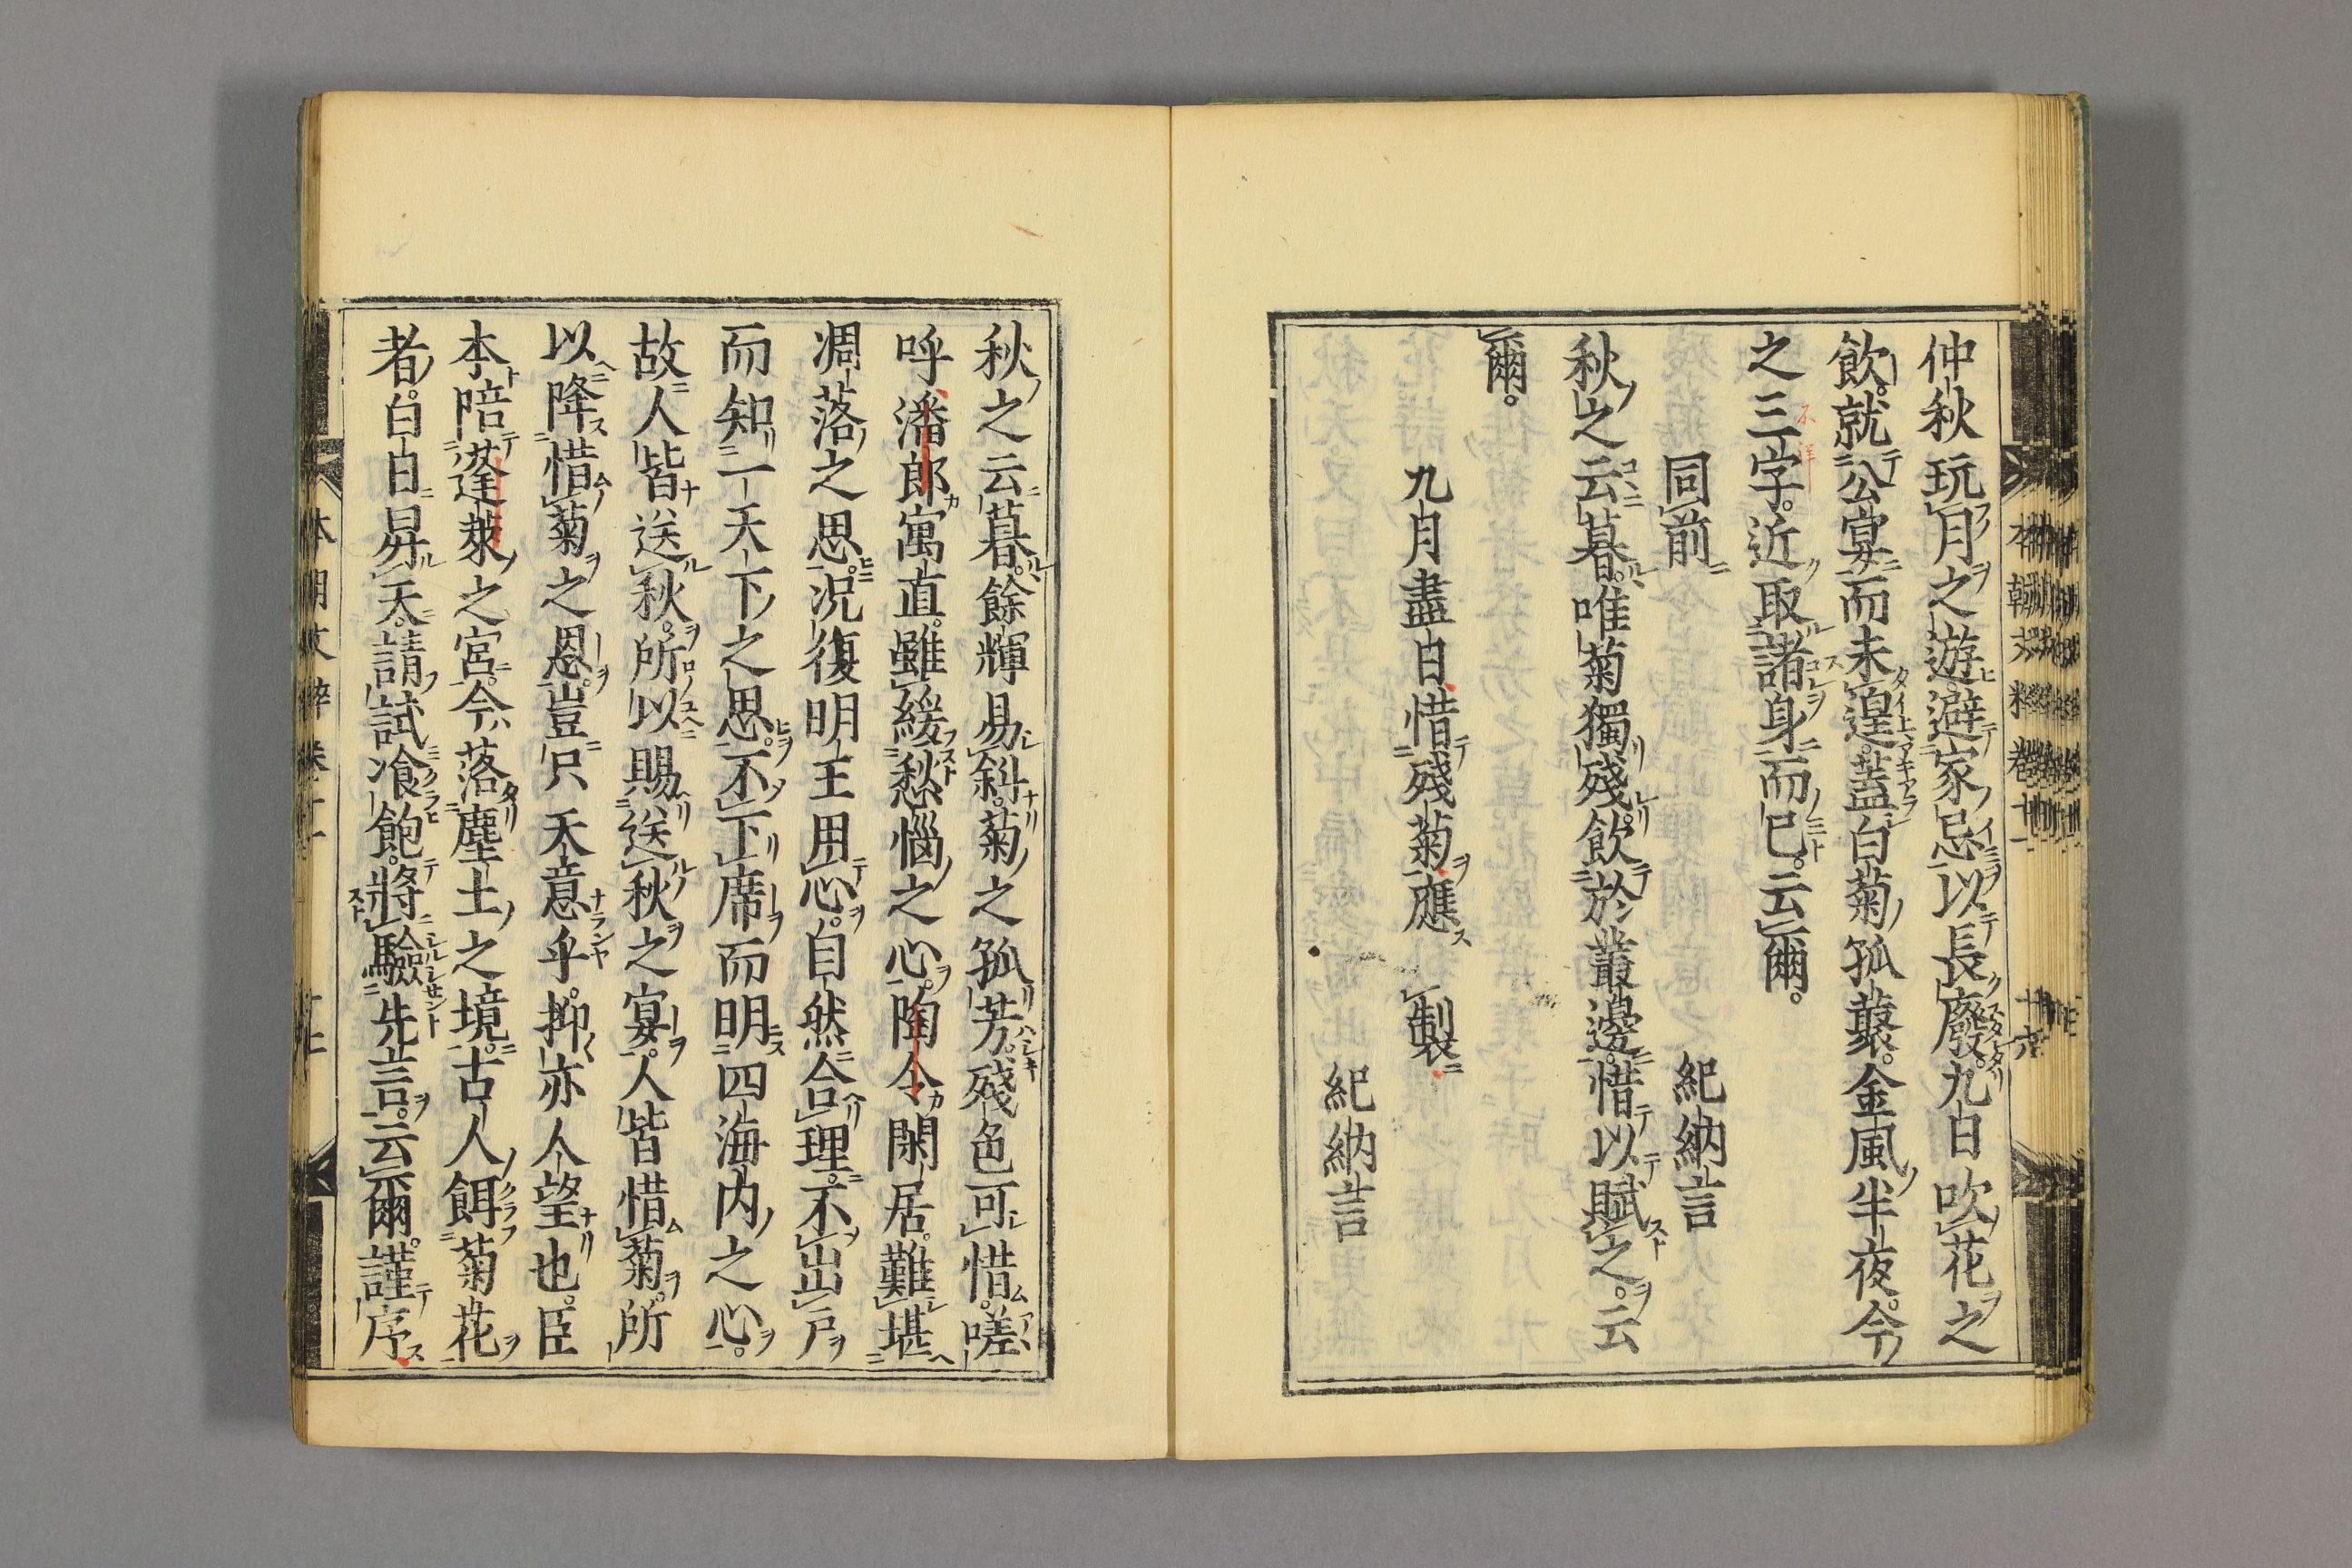 仲秋玩月之遊避家忌以長廢九日吹花之
飮。就公宴而未遑。蓋白菊孤叢。金風半夜。今
之三字。近取諸身而已。云爾。
同前 紀納言
秋之云暮。唯菊獨殘。飮於叢邊。惜以賦之。云
爾。
九月盡日惜殘菊應製
紀納言
秋之云暮。餘輝易斜。菊之孤芳。殘色可惜。嗟
呼潘郎寓直。雖緩愁惱之心。陶令閑居。難堪
凋落之思。況復明王用心。自然合理。不出戶
而知一天下之思。不下席而明四海內之心。
故人皆送秋。所以賜送秋之宴。人皆惜菊。所
以降惜菊之恩。豈只天意乎。抑亦人望也。臣
本陪蓬萊之宮。今落塵土之境。古人餌菊花
者。白日昇天。請試飡飽。將驗先言。云爾。謹序
本朝文粹卷十一 十六